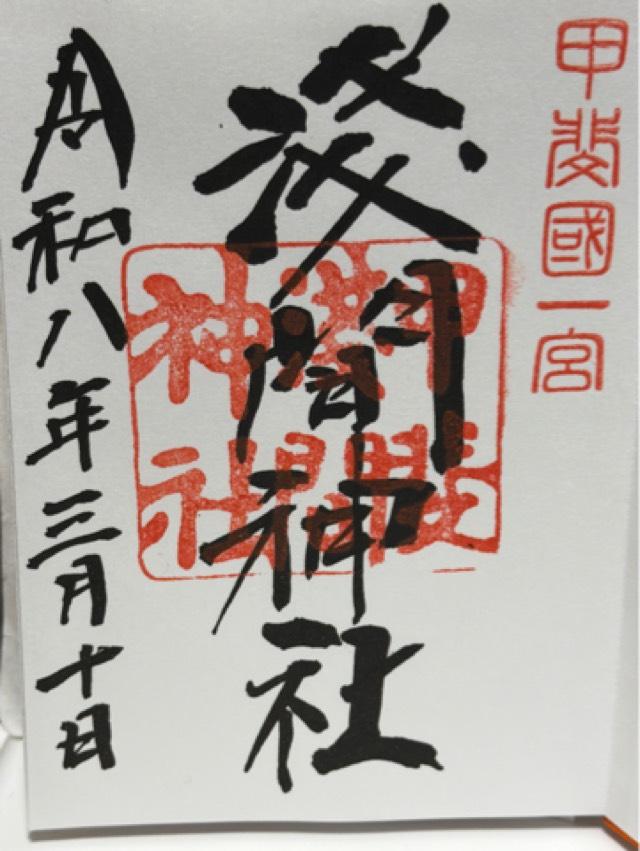 甲斐國一宮
淺間神社
神社
令和八年三月十日